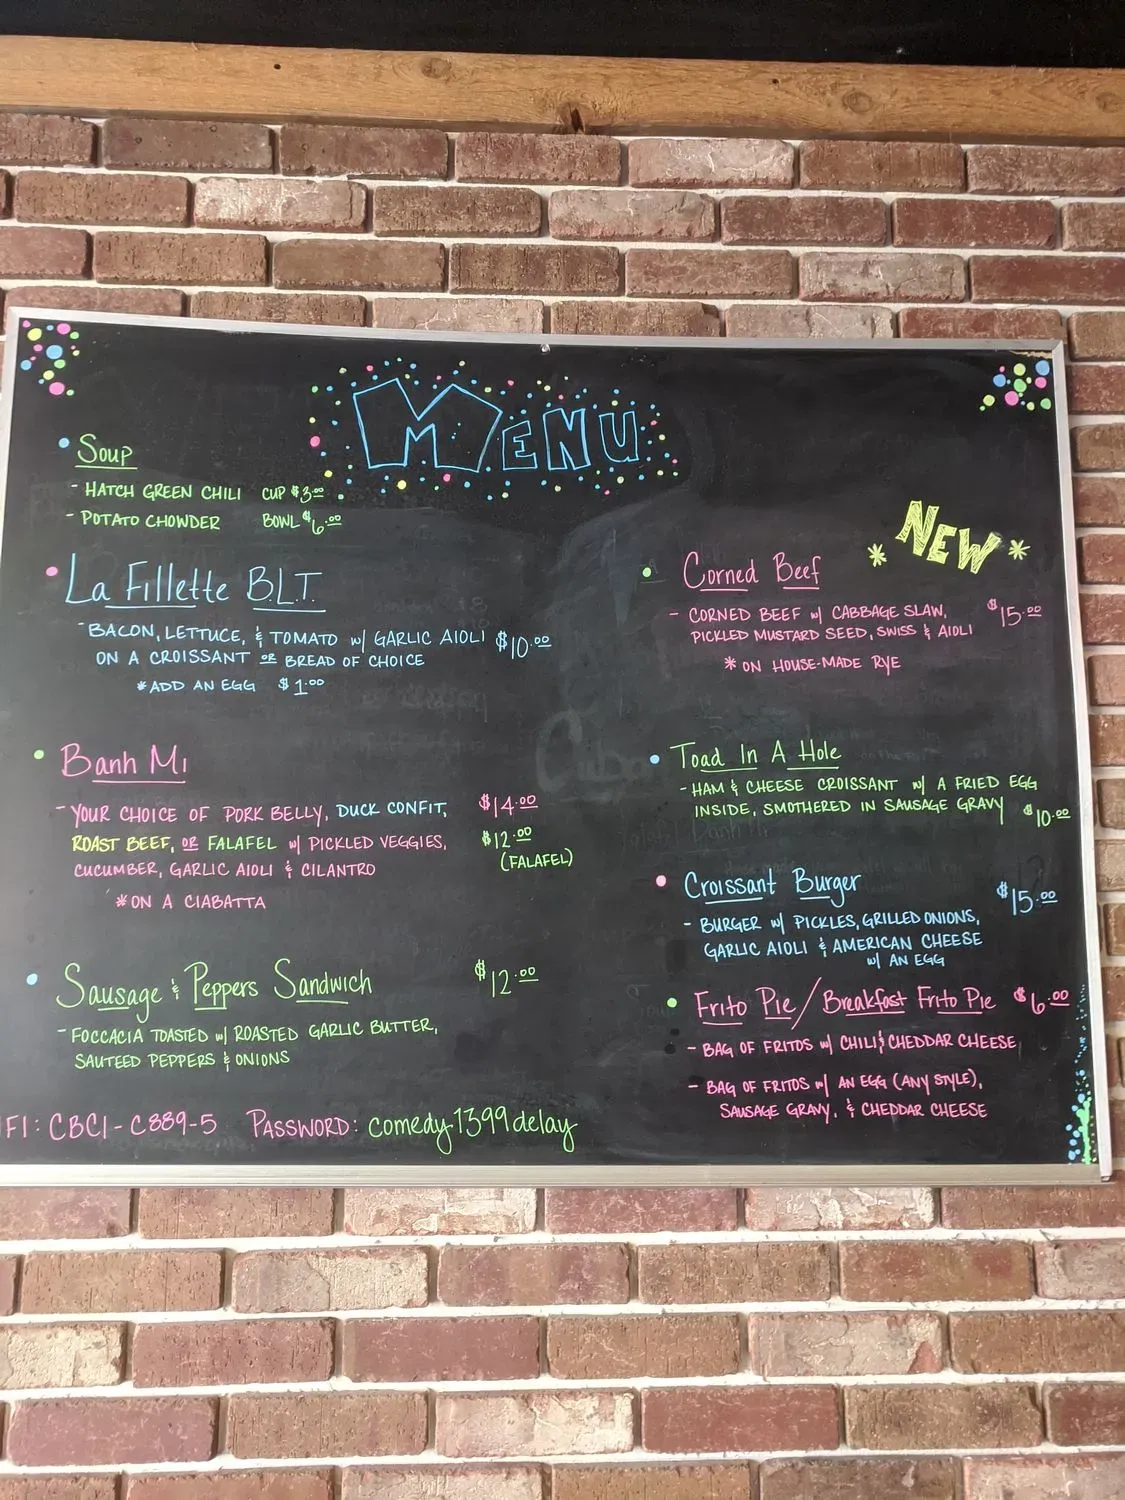 MENU
Soup
- HATCH GREEN CHILI CUP $3.00
- POTATO CHOWDER BOWL $6.00
La Fillette B.L.T.
- BACON, LETTUCE, & TOMATO w/ GARLIC AIOLI $10.00
ON A CROISSANT OR BREAD OF CHOICE
*ADD AN EGG $1.00
Banh Mi
- YOUR CHOICE OF PORK BELLY, DUCK CONFIT, $14.00
ROAST BEEF, OR FALAFEL w/ PICKLED VEGGIES, $12.00
(FALAFEL)
CUCUMBER, GARLIC AIOLI & CILANTRO
*ON A CIABATTA
Sausage & Peppers Sandwich $12.00
- FOCCACIA TOASTED w/ ROASTED GARLIC BUTTER,
SAUTEED PEPPERS & ONIONS
FI: CBCI-C889-5 PASSWORD: comedy1399delay
*NEW*
Corned Beef
- CORNED BEEF w/ CABBAGE SLAW, $15.00
PICKLED MUSTARD SEED, SWISS & AIOLI
* ON HOUSE-MADE RYE
Toad In A Hole
- HAM & CHEESE CROISSANT w/ A FRIED EGG
INSIDE, SMOTHERED IN SAUSAGE GRAVY $10.00
Croissant Burger $15.00
- BURGER w/ PICKLES, GRILLED ONIONS,
GARLIC AIOLI & AMERICAN CHEESE
w/ AN EGG
Frito Pie / Breakfast Frito Pie $6.00
- BAG OF FRITOS w/ CHILI & CHEDDAR CHEESE
- BAG OF FRITOS w/ AN EGG (ANY STYLE),
SAUSAGE GRAVY, & CHEDDAR CHEESE